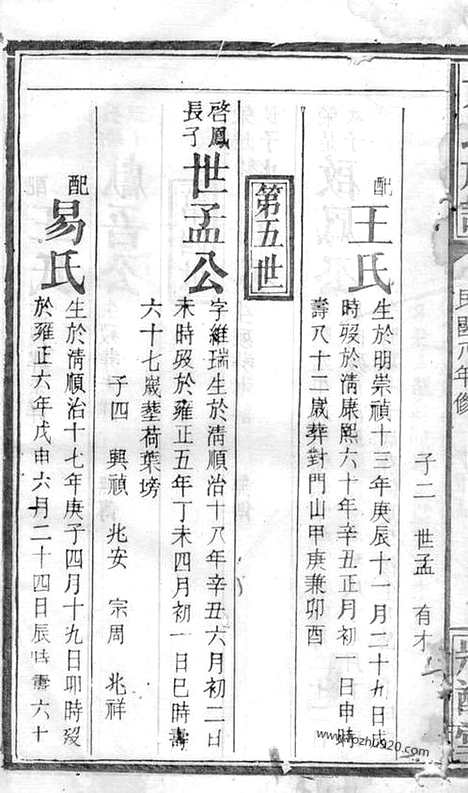 民國八年修
子二 世孟 有才
配王氏
生於明崇禎十三年庚辰十一月二十九日戌
時歿於清康熙六十年辛丑正月初一日申時
壽八十二歲葬對門山甲庚兼卯酉
第五世
啓鳳長子
世孟公
字維瑞生於清順治十八年辛丑六月初二日
未時歿於雍正五年丁未四月初一日巳時壽
六十七歲塟荷葉塝
子四 興禎 兆安 宗周 兆祥
配易氏
生於清順治十七年庚子四月十九日卯時歿
於雍正六年戊申六月二十四日辰時壽六十
www.jiapuzhijia.com